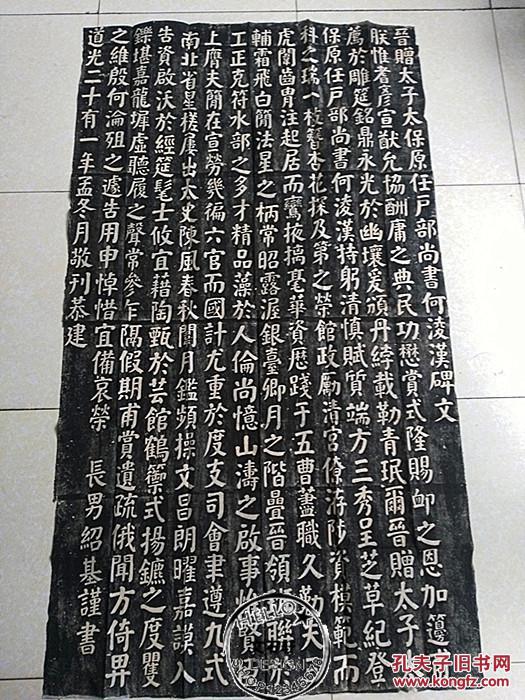 晉贈太子太保原任戶部尚書何淩漢碑文
朕惟耆彥宣猷允協酬庸之典民功懋賞式隆賜卹之恩加籩
薦於雕筵銘鼎永光於幽壤爰頒丹綍載勒青珉爾晉贈太子
保原任戶部尚書何淩漢持躬清慎賦質端方三秀呈芝草紀登
科之瑞一枝簪杏花探及第之榮館政勵清宮僚游陟資模範而
虎闈齒冑注起居而鸞掖摛毫華資歷踐于五曹藎職久勤夫
輔霜飛白簡法星之柄常昭露渥銀臺卿月之階疊晉領 聯
工正克符水部之多才精品藻於人倫尚憶山濤之啟事 賢
上膺夫簡在宣勞幾徧六官而國計尤重於度支司會聿遵九式
南北省星槎屢出太史陳風春秋闈月鑑頻操文昌朗曜嘉謨入
告資啟沃於經筵髦士攸宜藉陶甄於芸館鶴籞式揚鑣之度矍
鑠堪嘉龍墀虛聽履之聲常參乍隔假期甫賞遺疏俄聞方倚畀
之維殷何淪殂之遽告用申悼惜宜備哀榮 長男紹基謹書
道光二十有一年孟冬月敬刊恭建
孔夫子旧书网